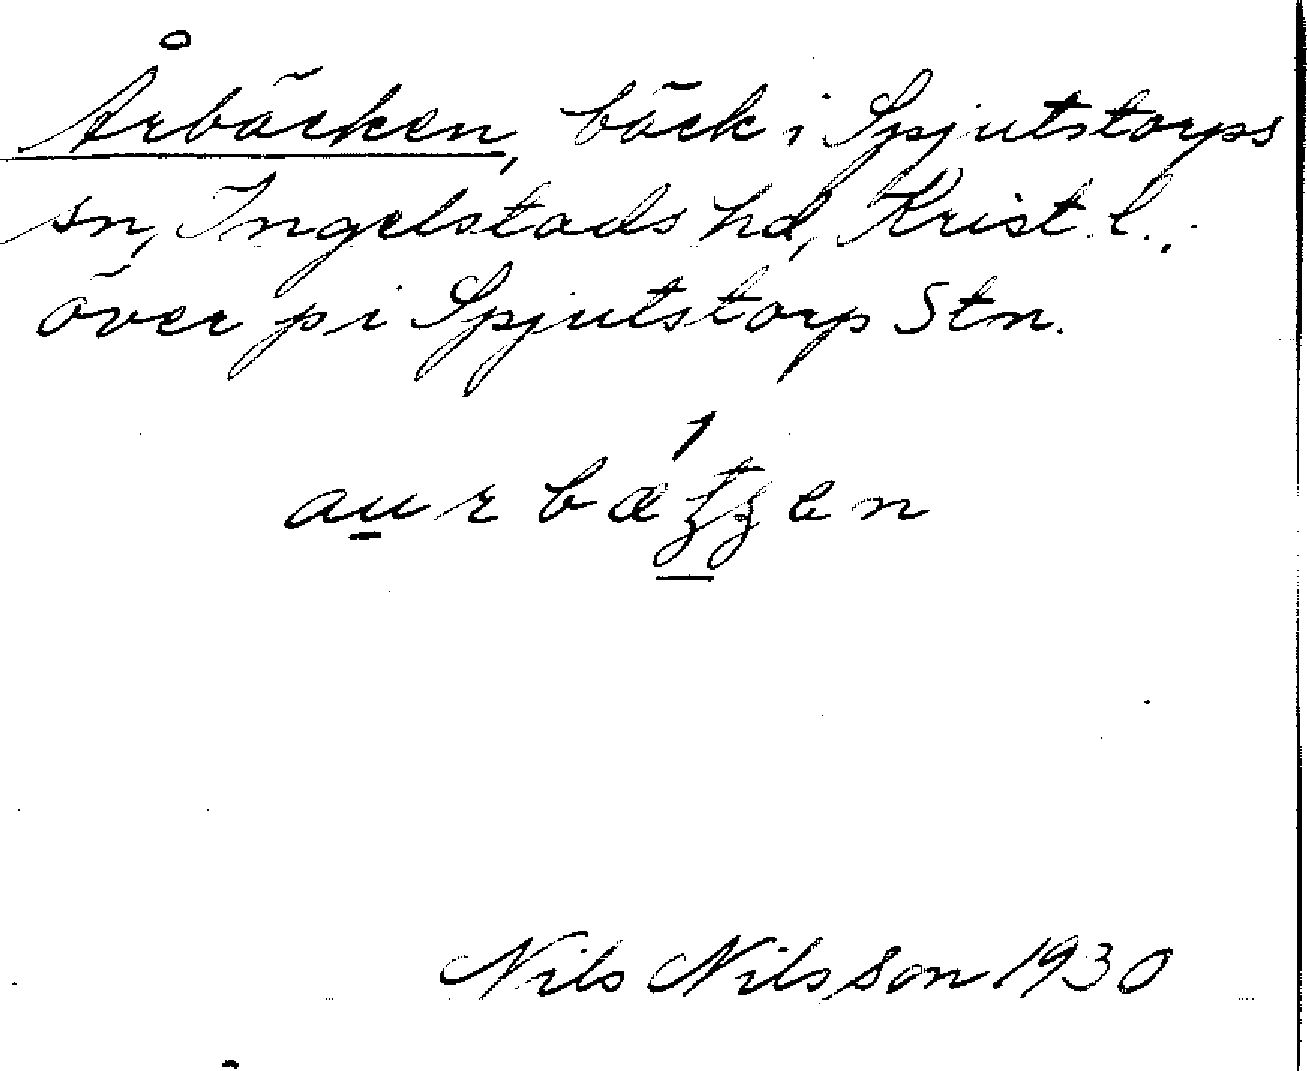 Årbäcken, bäck i Spjutstorps
sn, Ingelstads hd, Krist. l.,
över p i Spjutstorp Stn.
aurbætʒen
Nils Nilsson 1930